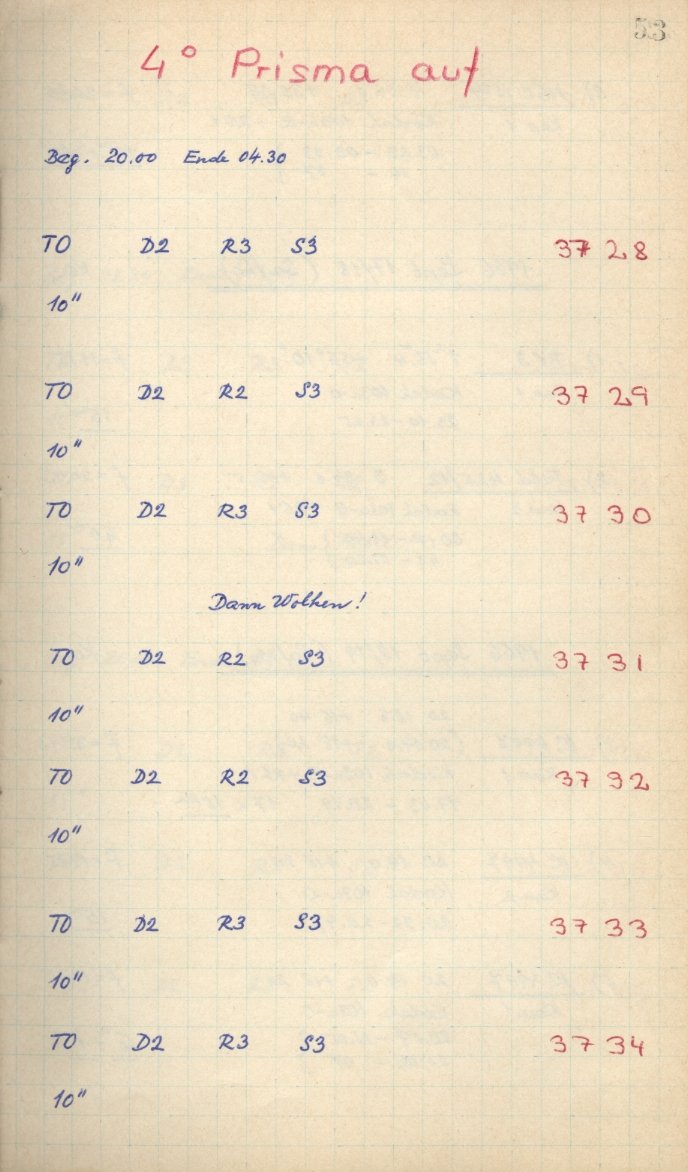 53
4° Prisma auf
Beg. 20.00 Ende 04.30
TO D2 R3 S3 37 28
10"
TO D2 R2 S3 37 29
10"
TO D2 R3 S3 37 30
10"
Dann Wolken!
TO D2 R2 S3 37 31
10"
TO D2 R2 S3 37 32
10"
TO D2 R3 S3 37 33
10"
TO D2 R3 S3 37 34
10"